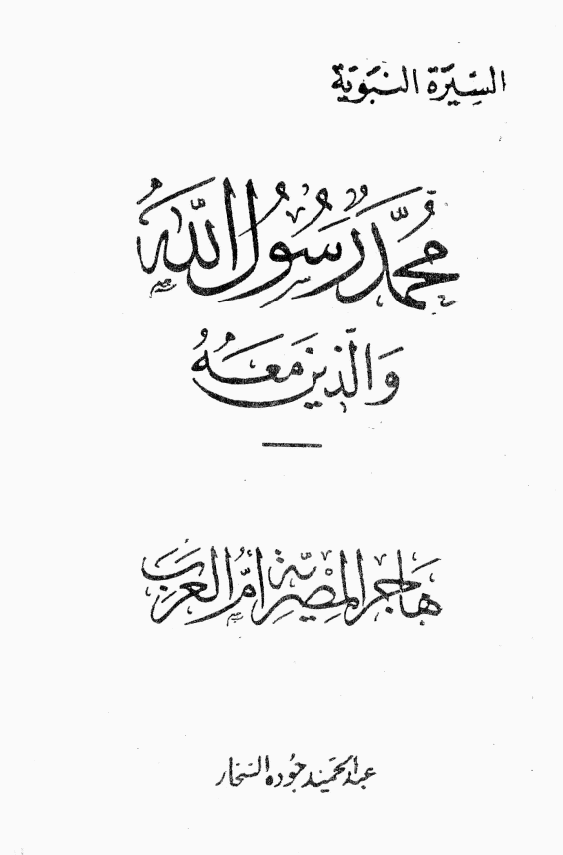 السِّيَرة النَبَوَية
مُحَمَّدٌ رَسُولُ اللهُ
وَالَّذِينَ مَعَهُ
هَاجَر المِصْرِيَّة أمّ العَرَب
عبد الحميد جوده السحار